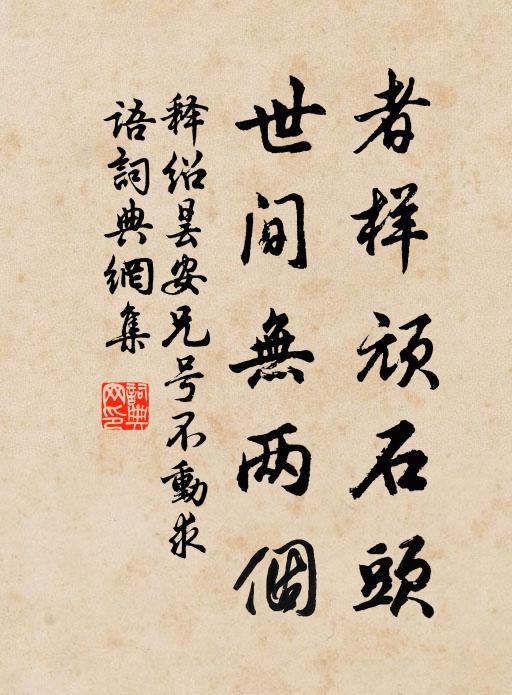 者样顽石頭
世间無两個
释绍昙安兄号不動求
语詞典網集
詞典网印